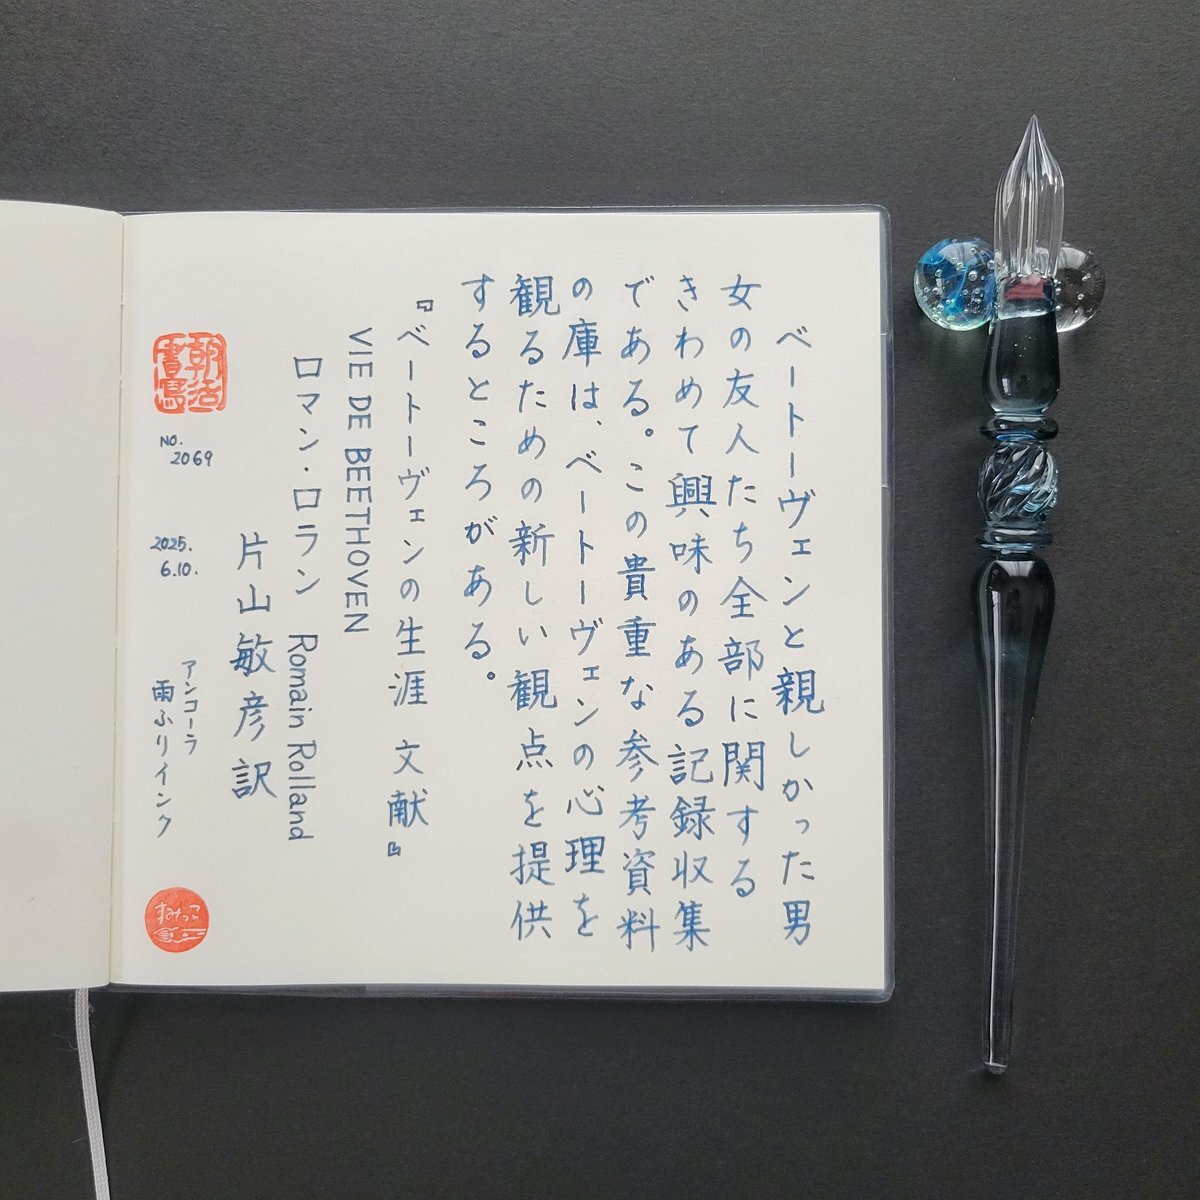 ベートーヴェンと親しかった男
女の友人たち全部に関する
きわめて興味のある記録収集
である。この貴重な参考資料
の庫は、ベートーヴェンの心理を
観るための新しい観点を提供
するところがある。
『ベートーヴェンの生涯 文献』
VIE DE BEETHOVEN
ロマン・ロラン Romain Rolland
片山敏彦訳
朝活
書写
NO.
2069
2025.
6.10.
アンコーラ
雨ふりインク
すみっこ